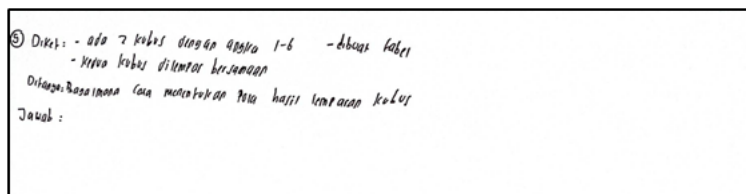 ⑤ Diket : - ada 2 kubus dengan angka 1-6 - dibuat tabel
- kedua kubus dilempar bersamaan
Ditanya: Bagaimana cara menentukan pola hasil lemparan kubus
Jawab :